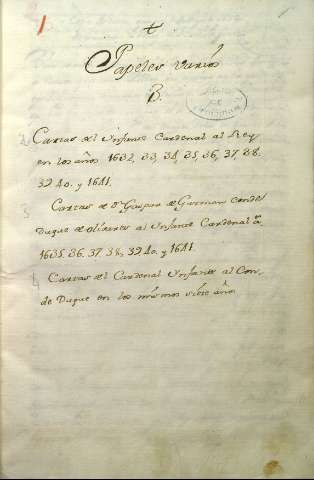 1
Papeles varios
B.
2 Cartas del Infante Cardenal al Rey
en los años 1632, 33, 34, 35, 36, 37, 38.
39 40. y 1641.
3 Cartas de Dn Gaspar de Guzman conde
Duque de olivares al Infante Cardenal
1635. 36. 37. 38, 39 40. y 1641.
4 Cartas del Cardenal Infante al Con-
de Duque en los mismos siete años